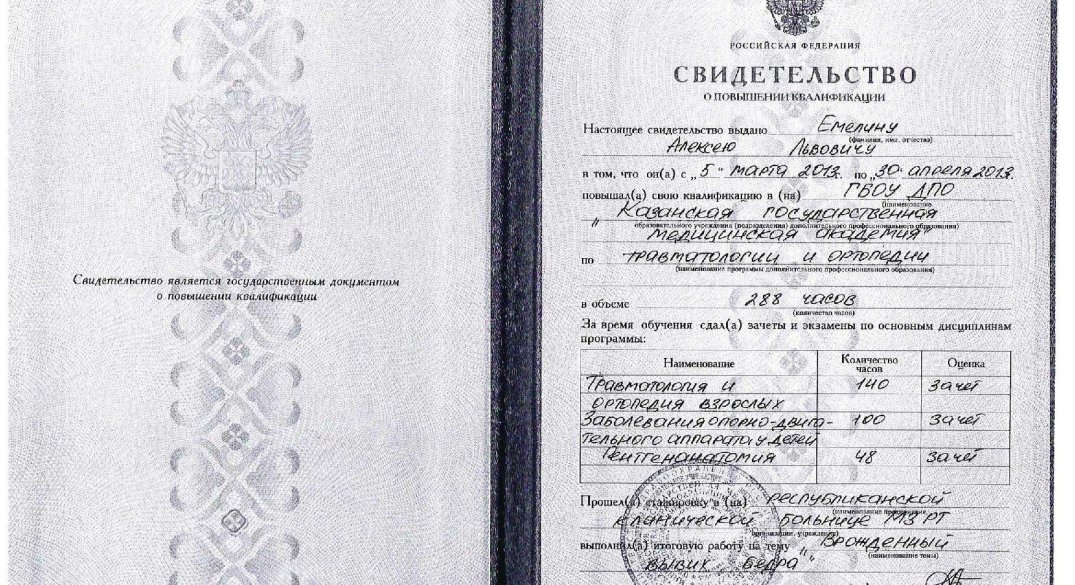 Свидетельство является государственным документом
о повышении квалификации
РОССИЙСКАЯ ФЕДЕРАЦИЯ
СВИДЕТЕЛЬСТВО
О ПОВЫШЕНИИ КВАЛИФИКАЦИИ
Настоящее свидетельство выдано Емелину
(фамилия, имя, отчество)
Алексею Львовичу
в том, что он(а) с „5" марта 2013. по „30" апреля 2013.
повышал(а) свою квалификацию в (на) ГБОУ ДПО
(наименование
„Казанская государственная
образовательного учреждения (подразделения) дополнительного профессионального образования)
медицинская академия"
по травматологии и ортопедии
(наименование программы дополнительного профессионального образования)
в объеме 288 часов
(количество часов)
За время обучения сдал(а) зачеты и экзамены по основным дисциплинам
программы:
Наименование Количество часов Оценка
Травматология и 140 зачет
ортопедия взрослых
Заболевания опорно-двига- 100 зачет
тельного аппарата у детей
Рентгенанатомия 48 зачет
Прошел(а) стажировку в (на) Республиканской
(наименование предприятия,
клинической больнице МЗ РТ
организации, учреждения)
выполнил(а) итоговую работу на тему „Врожденный
(наименование темы)
вывих бедра"